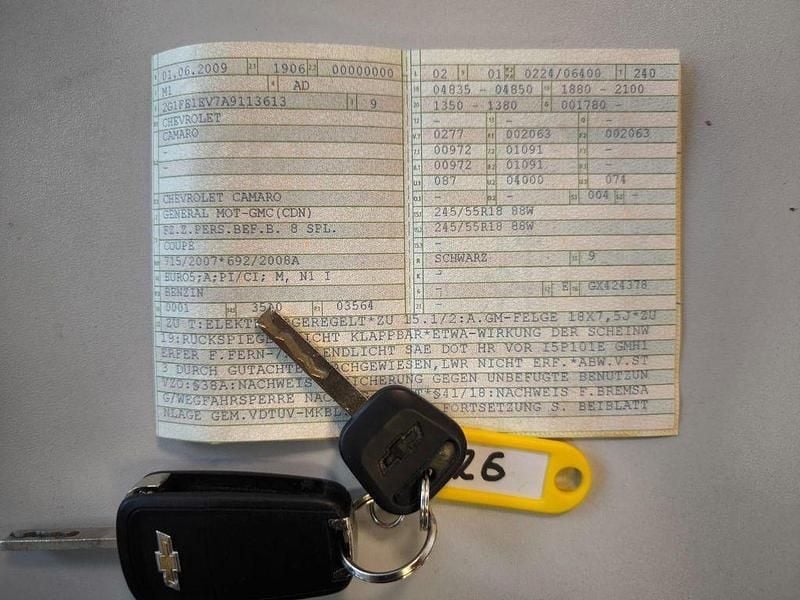 01.06.2009 1906 00000000
M1 AD
2G1FB1EV7A9113613 9
CHEVROLET
CAMARO
-
CHEVROLET CAMARO
GENERAL MOT-GMC(CDN)
FZ.Z.PERS.BEF.B. 8 SPL.
COUPE
715/2007*692/2008A
EURO5;A;PI/CI; M, N1 I
BENZIN
0001 35A0 03564
02 01 0224/06400 240
04835 - 04850 1880 - 2100
1350 - 1380 001780 -
- - -
0277 002063 002063
00972 01091 -
00972 01091 -
087 04000 074
- - 004 -
245/55R18 88W
245/55R18 88W
-
SCHWARZ 9
-
- E GX424378
-
ZU T:ELEKTR GEREGELT*ZU 15.1/2:A.GM-FELGE 18X7,5J*ZU
19:RUECKSPIEGEL NICHT KLAPPBAR*ETWA-WIRKUNG DER SCHEINW
ERFER F.FERN- ENDLICHT SAE DOT HR VOR I5P101E GMH1
3 DURCH GUTACHTEN NACHGEWIESEN,LWR NICHT ERF.*ABW.V.ST
VZO:§38A:NACHWEIS SICHERUNG GEGEN UNBEFUGTE BENUTZUN
G/WEGFAHRSPERRE NAC §41/18:NACHWEIS F.BREMSA
NLAGE GEM.VDTUV-MKBL FORTSETZUNG S. BEIBLATT
26